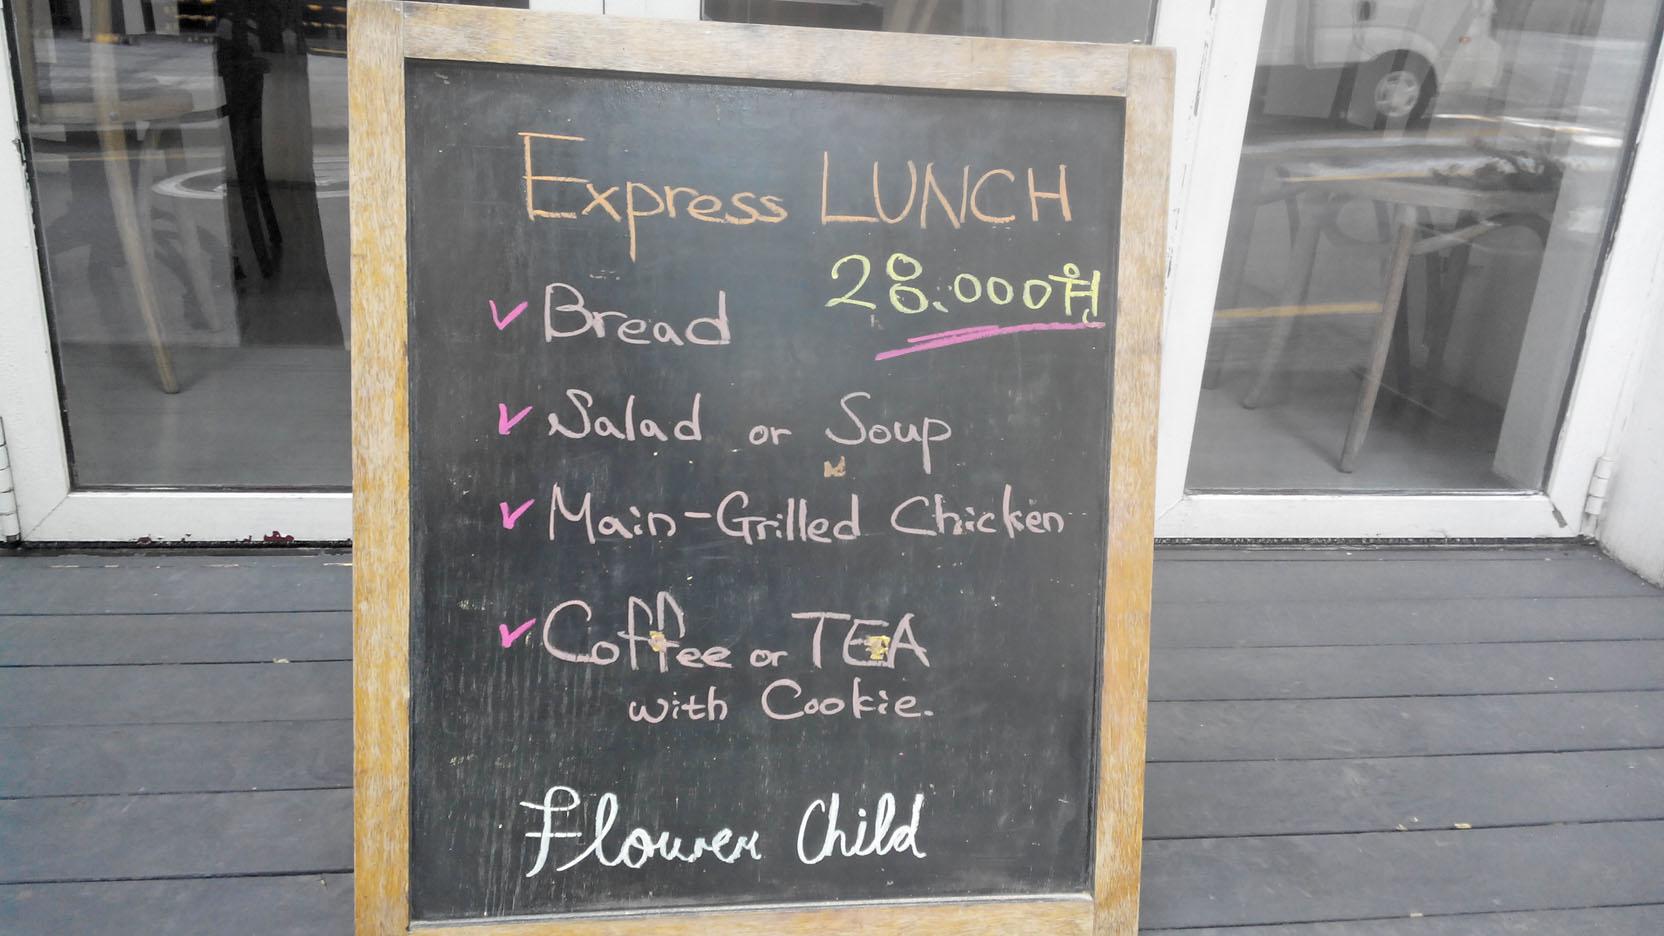 Express LUNCH
28.000원
✓ Bread
✓ Salad or Soup
✓ Main-Grilled Chicken
✓ Coffee or TEA
with Cookie.
Flower Child